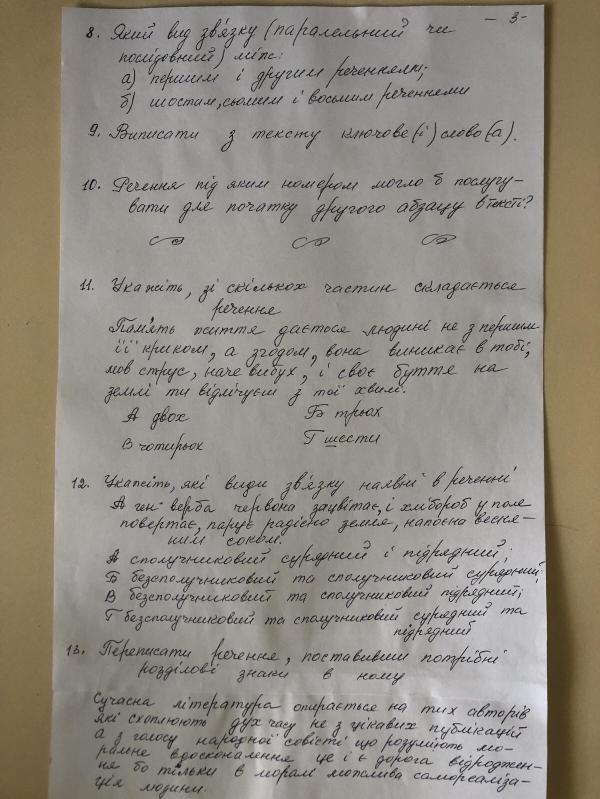 - 3-
8. Який вид зв'язку (паралельний чи
послідовний) між:
а) першим і другим реченнями;
б) шостим, сьомим і восьмим реченнями
9. Виписати з тексту ключове(і) слово(а).
10. Речення під яким номером могло б послугу-
вати для початку другого абзацу в тексті?
11. Укажіть, зі скількох частин складається
речення
Пам'ять життя дається людині не з першим
її криком, а згодом, вона виникає в тобі,
мов струс, наче вибух, і своє буття на
землі ти відлічуєш з тої хвилі.
А двох Б трьох
В чотирьох Г шести
12. Укажіть, які види зв'язку наявні в реченні
А ген верба червона зацвітає, і хлібороб у поле
повертає, парує радісно земля, напоєна весня-
ним соком.
А сполучниковий сурядний і підрядний;
Б безсполучниковий та сполучниковий сурядний;
В безсполучниковий та сполучниковий підрядний;
Г безсполучниковий та сполучниковий сурядний та
підрядний
13. Переписати речення, поставивши потрібні
розділові знаки в ньому
Сучасна література опирається на тих авторів
які схоплюють дух часу не з цікавих публікацій
а з голосу народної совісті що розуміють мо-
ральне вдосконалення це і є дорога відроджен-
ня бо тільки в моралі можлива самореаліза-
ція людини.